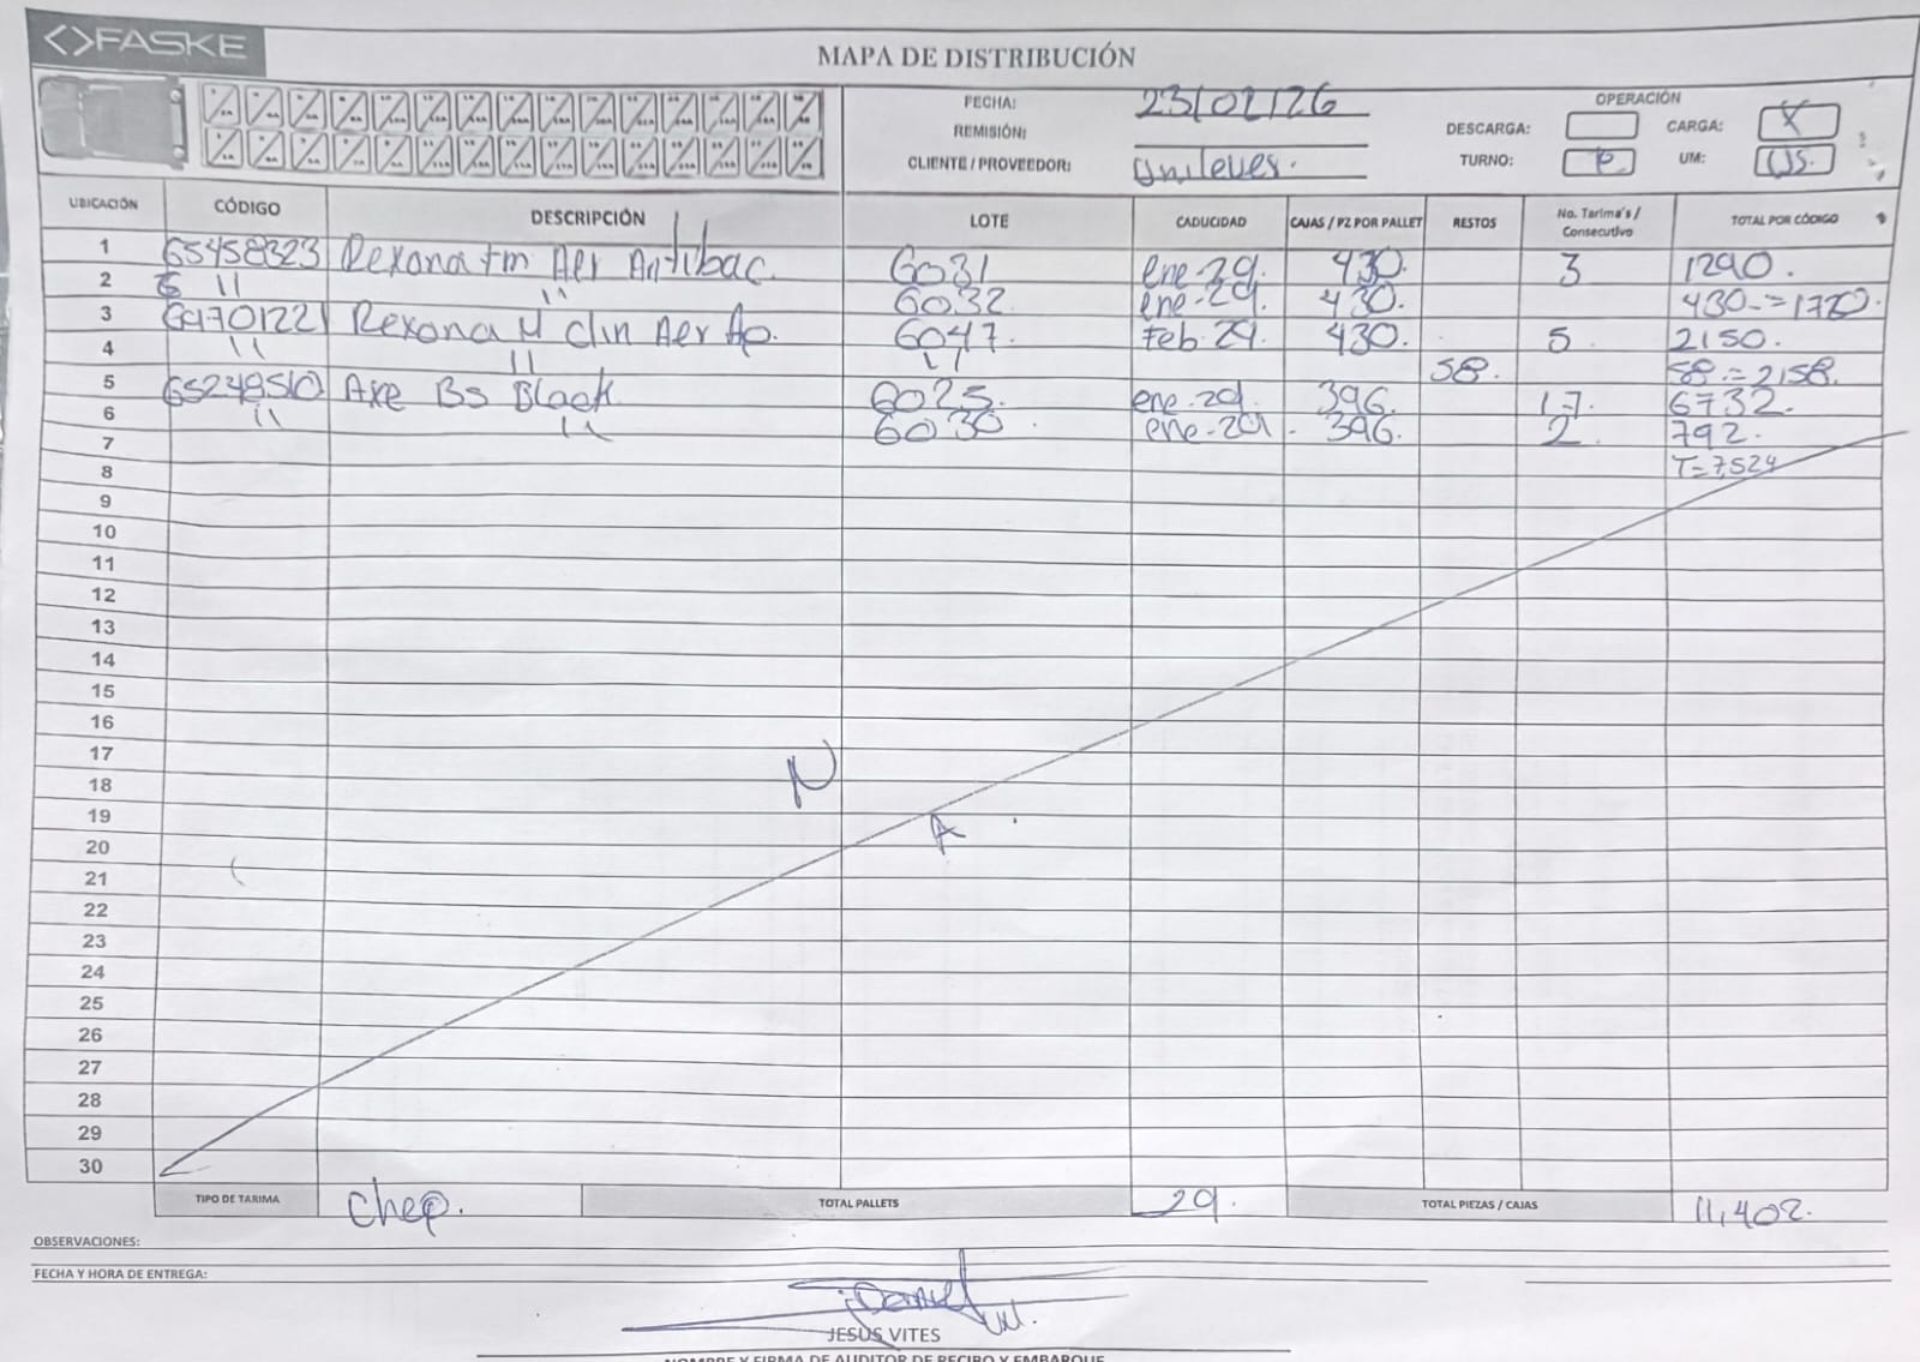 <>FASKE
MAPA DE DISTRIBUCIÓN
FECHA: 23/02/26
REMISIÓN:
CLIENTE / PROVEEDOR: Unilever.
OPERACIÓN
DESCARGA: CARGA: X
TURNO: P UM: US.
UBICACIÓN CÓDIGO DESCRIPCIÓN LOTE CADUCIDAD CAJAS / PZ POR PALLET RESTOS No. Tarima's / Consecutivo TOTAL POR CÓDIGO
1 65458323 Rexona tm Aer Antibac. 6031 ene-29. 430. 3 1290.
2 " " 6032. ene-29. 430. 430.=1720.
3 69701221 Rexona M clin Aer Ap. 6047. Feb-29. 430. 5 2150.
4 " " " 58. 58.=2158.
5 65249510 Axe Bs Black 6025. ene-29. 396. 17. 6732.
6 " " 6030. ene-29. 396. 2. 792.
7 T=7,524
8
9
10
11
12
13
14
15
16
17
18 N
19 A
20
21
22
23
24
25
26
27
28
29
30
TIPO DE TARIMA Chep. TOTAL PALLETS 29. TOTAL PIEZAS / CAJAS 11,402.
OBSERVACIONES:
FECHA Y HORA DE ENTREGA:
JESUS VITES
NOMBRE Y FIRMA DE AUDITOR DE RECIBO Y EMBARQUE